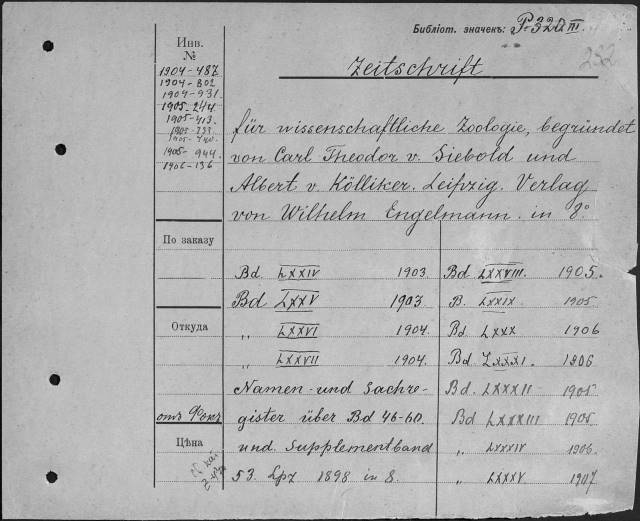 Библіот. значекъ: P-320 III.
252
Инв.
№
1904-487
1904-802
1904-931
1905-244
1905-413
1905-
1905-
1905-944
1906-136
Zeitschrift
für wissenschaftliche Zoologie, begründet
von Carl Theodor v. Siebold und
Albert v. Kölliker. Leipzig. Verlag
von Wilhelm Engelmann. in 8°
По заказу
Откуда
отъ Фонъ
Цѣна
Bd. LXXIV 1903
Bd LXXV 1903
„ LXXVI 1904.
„ LXXVII 1904.
Namen- und Sachre-
gister über Bd 46-60.
und Supplementband
53. Lpz 1898 in 8.
Bd LXXVIII. 1905.
B. LXXIX 1905
Bd LXXX 1906
Bd LXXXI. 1906
Bd. LXXXII - 1905
Bd LXXXIII 1905
„ LXXXIV 1906.
„ LXXXV 1907